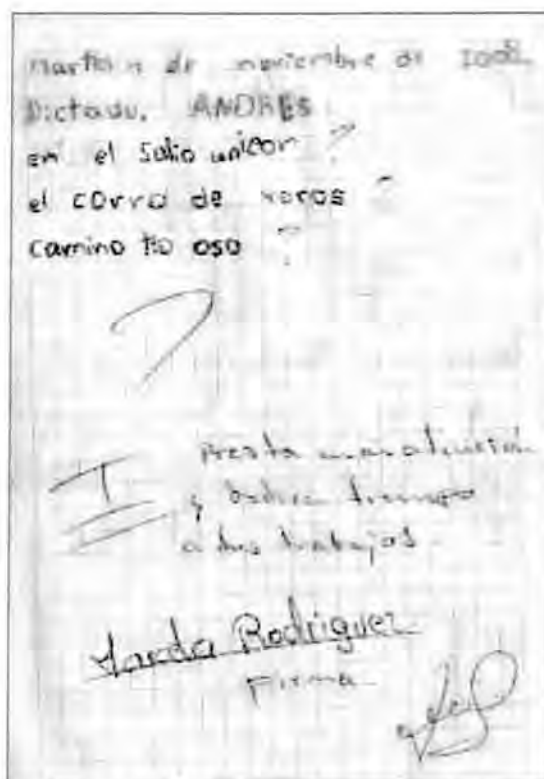 de noviembre de 2008
Dictado. ANDRES
en el salio unicor ?
el corro de ?
camino tio oso ?
?
I
Presta mas atencion
y dedica tiempo
a tus trabajos.
Rodriguez
Firma